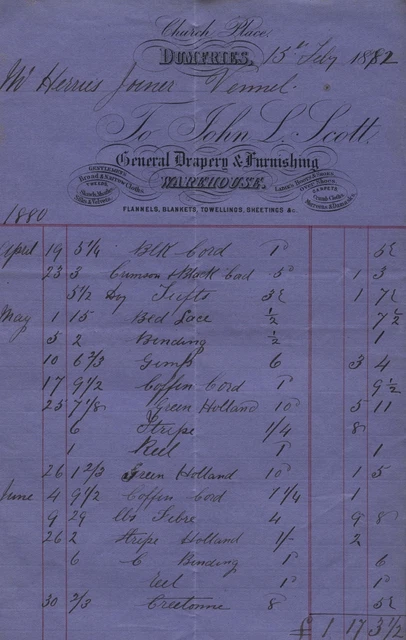 Church Place.
DUMFRIES, 15th Feby 1882
Mr Herries Joiner Vennel.
To John L. Scott,
General Drapery & Furnishing
WAREHOUSE.
GENTLEMEN'S
Broad & Narrow Cloths,
TWEEDS,
Shawls, Mantles
Silks & Velvets.
CARPETS
Crumb Cloths
FLANNELS, BLANKETS, TOWELLINGS, SHEETINGS &c.
1880
April 19 5 1/4 Blk Cord 1d 5
23 3 Crimson & Black Cord 5d 1 3
5 1/2 Dy Tufts 3 1 7
May 1 15 Bed Lace 1/2 7 1/2
5 2 Binding 1/2 1
10 6 2/3 Gimp 6 3 4
17 9 1/2 Coffin Cord 1d 9 1/2
25 7 1/8 Green Holland 10d 5 11
6 Stripe 1/4 8
1 Reel 1d 1
26 1 2/3 Green Holland 10d 1 5
June 4 9 1/2 Coffin Cord 1 1/4 1
9 29 lbs Fibre 4 9 8
26 2 Stripe Holland 1/- 2
6 C Binding 1d 6
Reel 1d 1
30 2/3 Cretonne 8 5
£ 1 17 3 1/2